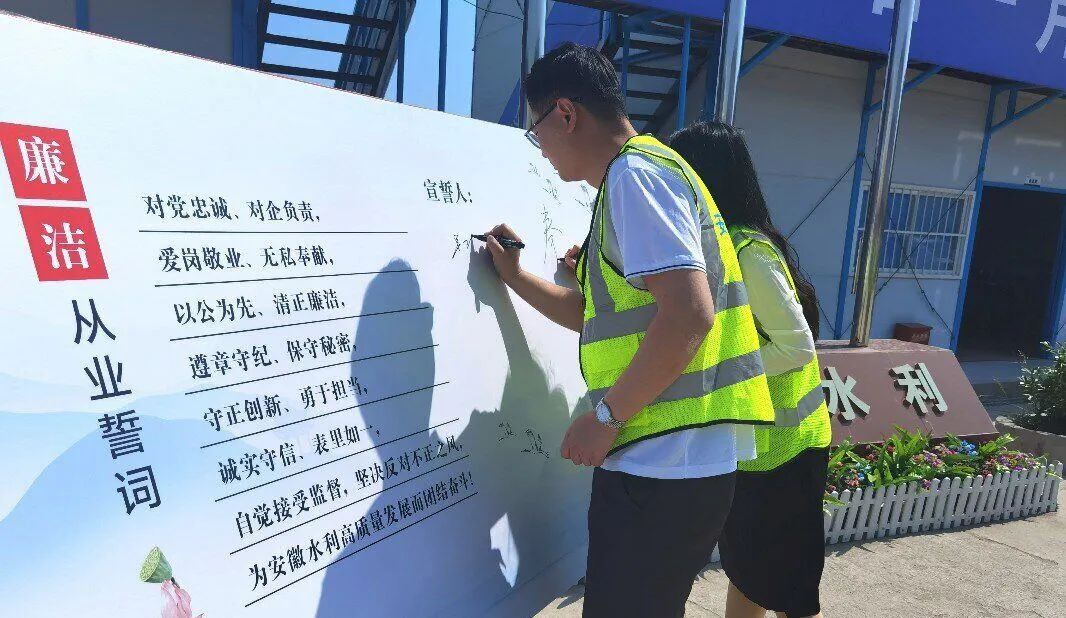 廉洁
从业誓词
对党忠诚、对企负责,
爱岗敬业、无私奉献,
以公为先、清正廉洁,
遵章守纪、保守秘密,
守正创新、勇于担当,
诚实守信、表里如一,
自觉接受监督,坚决反对不正之风,
为安徽水利高质量发展而团结奋斗!
宣誓人:
水利